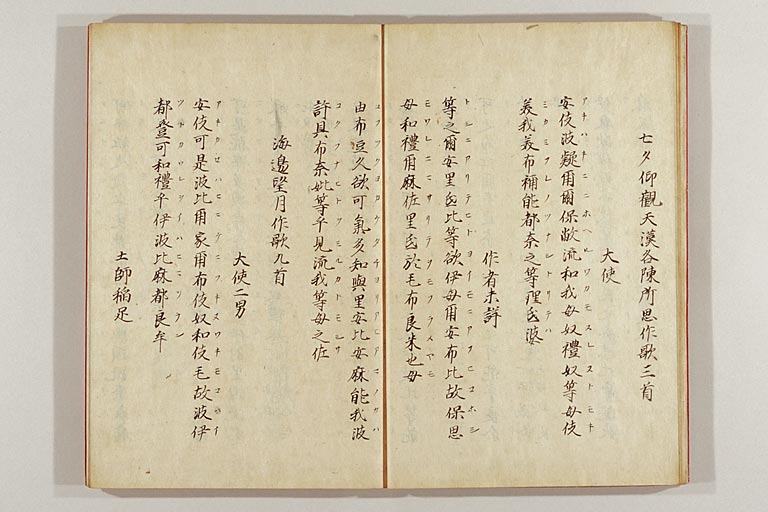 七夕仰觀天漢各陳所思作歌三首
大使
安伎波疑爾爾保敝流和我母奴禮奴等母伎
美我美布祢能都奈之等理弖婆
作者未詳
等之爾安里弖比等欲伊母爾安布比故保思
母和禮爾麻佐里弖於毛布良米也母
由布豆久欲可氣多知與里安比安麻能我波
許具布奈妣等乎見流我等母之佐
海邊望月作歌九首
大使二男
安伎可是波比爾家爾布伎奴和伎毛故波伊
都登可和禮乎伊波比麻都良牟
土師稲足